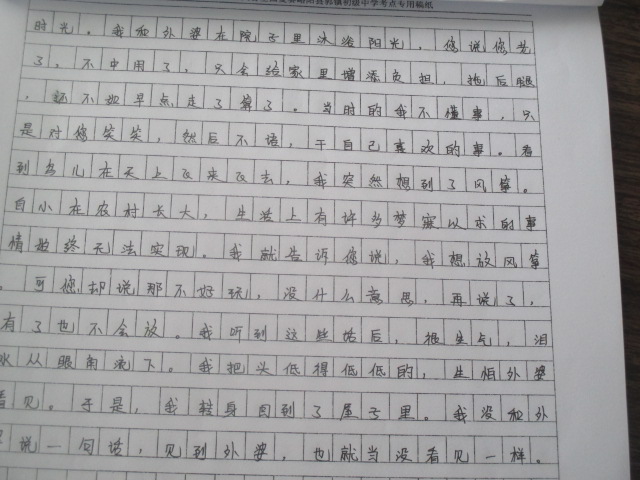 初级中学考点专用稿纸
时光。我和外婆在院子里沐浴阳光,您说您老
了,不中用了,只会给家里增添负担,拖后腿
,还不如早点走了算了。当时的我不懂事,只
是对您笑笑,然后不语,干自己喜欢的事。看
到鸟儿在天上飞来飞去,我突然想到了风筝。
自小在农村长大,生活上有许多梦寐以求的事
情始终无法实现。我就告诉您说,我想放风筝
。可您却说那不好玩,没什么意思,再说了,
有了也不会放。我听到这些话后,很生气,泪
水从眼角流下。我把头低得低低的,生怕外婆
看见。于是,我转身回到了屋子里。我没和外
说一句话,见到外婆,也就当没看见一样。